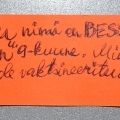 nimi on BESS
9-kuune. Mi
de vaktsineeritu